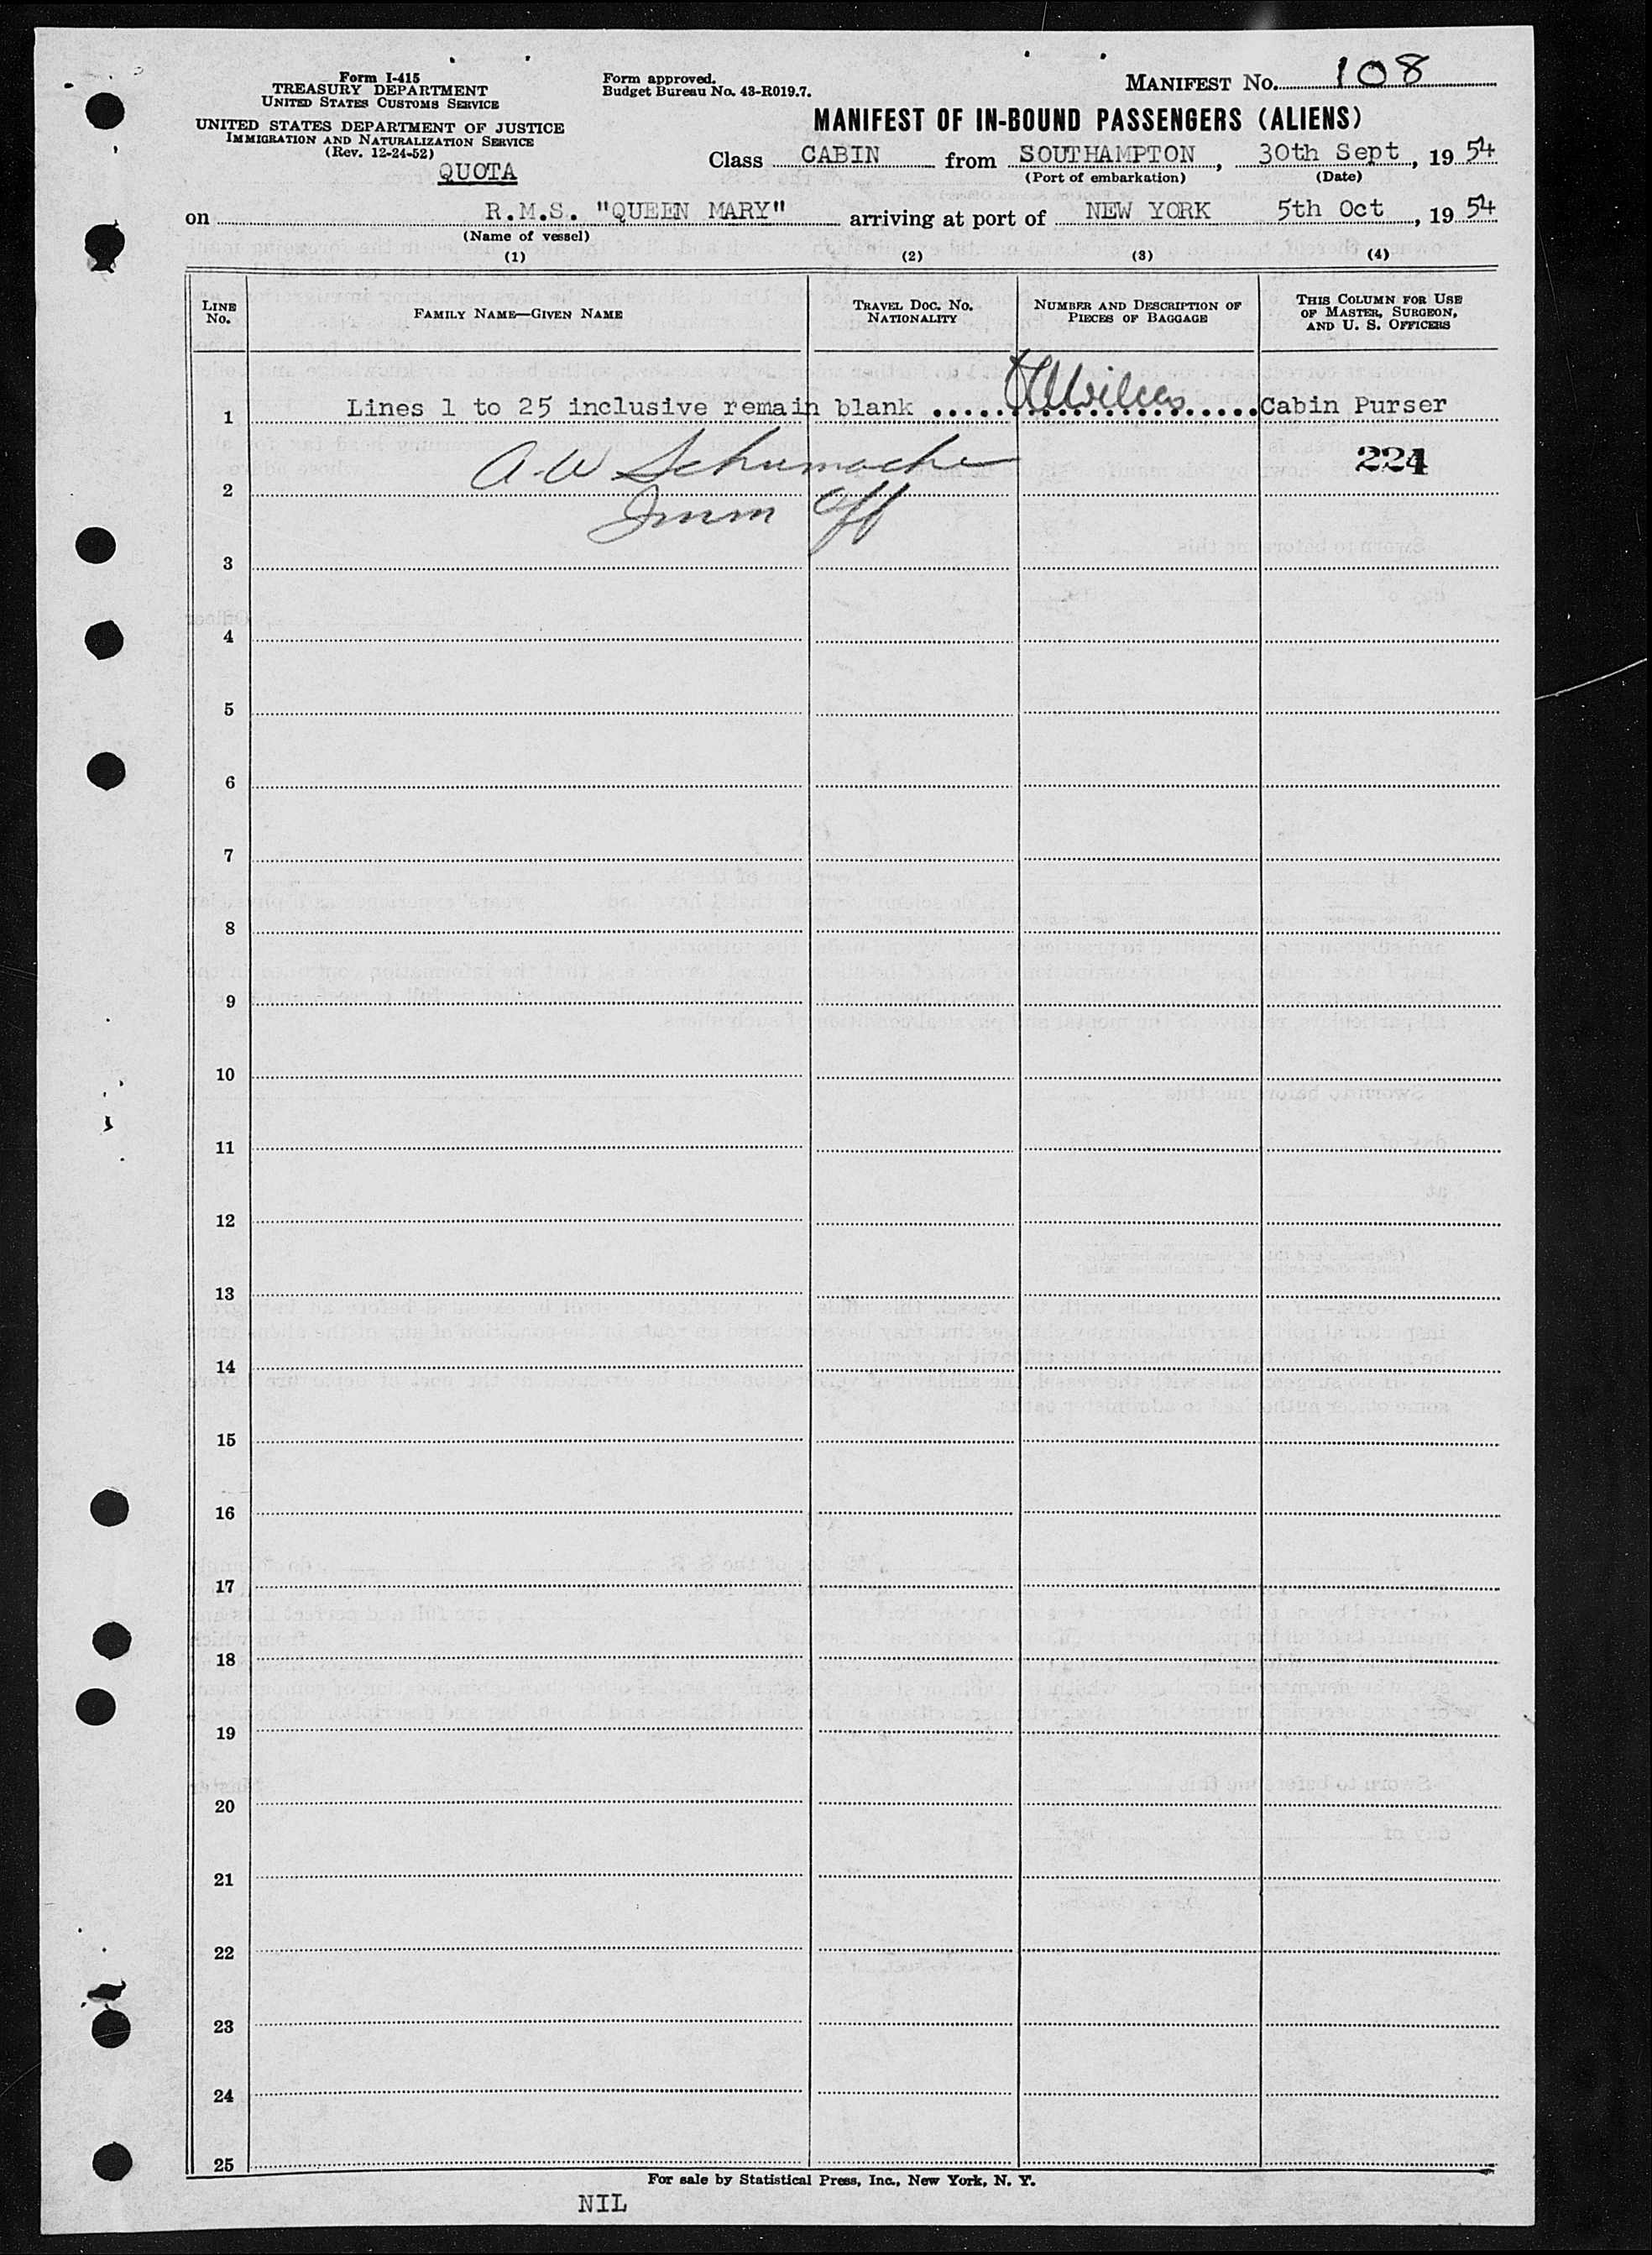 Form I-415
TREASURY DEPARTMENT
UNITED STATES CUSTOMS SERVICE
UNITED STATES DEPARTMENT OF JUSTICE
IMMIGRATION AND NATURALIZATION SERVICE
(Rev. 12-24-52)
QUOTA
Form approved.
Budget Bureau No. 43-R019.7.
MANIFEST NO. 108
MANIFEST OF IN-BOUND PASSENGERS (ALIENS)
Class CABIN from SOUTHAMPTON, 30th Sept, 19 54
(Port of embarkation) (Date)
on R.M.S. "QUEEN MARY" arriving at port of NEW YORK 5th Oct, 19 54
(Name of vessel)
(1) (2) (3) (4)
LINE No.
FAMILY NAME—GIVEN NAME
TRAVEL DOC. NO. NATIONALITY
NUMBER AND DESCRIPTION OF PIECES OF BAGGAGE
THIS COLUMN FOR USE OF MASTER, SURGEON, AND U. S. OFFICERS
1 Lines 1 to 25 inclusive remain blank ..... Cabin Purser
A. W Schumacher 224
2
Imm Off
3
4
5
6
7
8
9
10
11
12
13
14
15
16
17
18
19
20
21
22
23
24
25
For sale by Statistical Press, Inc., New York, N. Y.
NIL